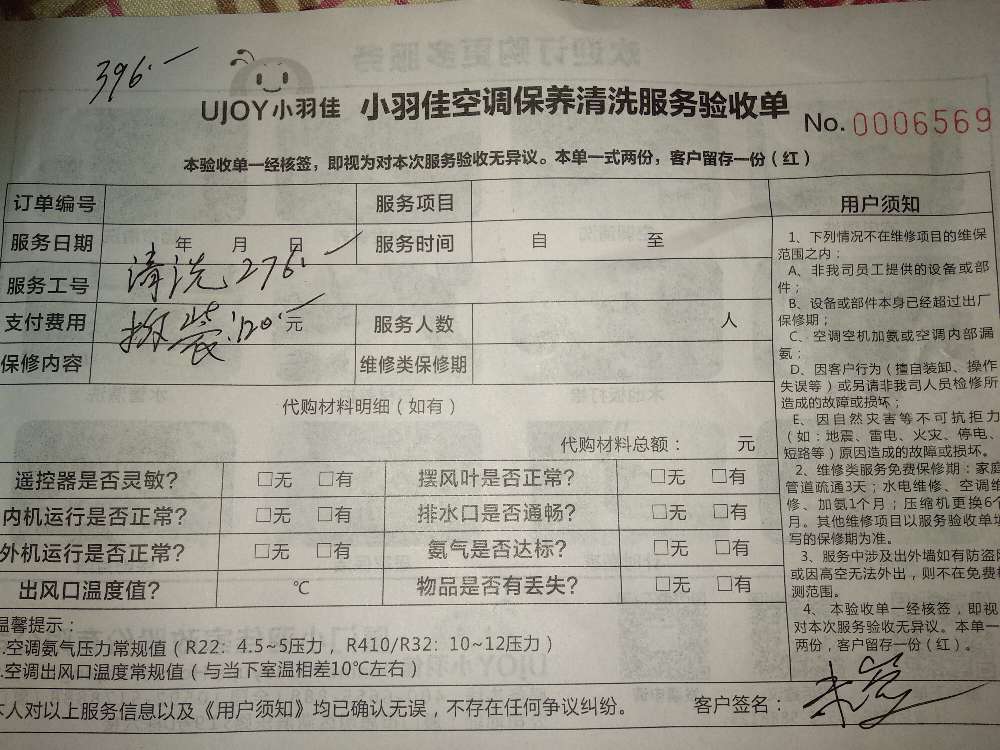 396.一
UJOY小羽佳 小羽佳空调保养清洗服务验收单
No. 0006569
本验收单一经核签，即视为对本次服务验收无异议。本单一式两份，客户留存一份（红）
订单编号 服务项目
服务日期 年 月 日 服务时间 自 至
服务工号 清洗 276.一
支付费用 120.一 元 服务人数 人
保修内容 维修类保修期
代购材料明细（如有）
代购材料总额： 元
遥控器是否灵敏？ □无 □有 摆风叶是否正常？ □无 □有
内机运行是否正常？ □无 □有 排水口是否通畅？ □无 □有
外机运行是否正常？ □无 □有 氨气是否达标？ □无 □有
出风口温度值？ ℃ 物品是否有丢失？ □无 □有
温馨提示：
.空调氨气压力常规值（R22：4.5~5压力，R410/R32：10~12压力）
.空调出风口温度常规值（与当下室温相差10℃左右）
本人对以上服务信息以及《用户须知》均已确认无误，不存在任何争议纠纷。 客户签名：
用户须知
1、下列情况不在维修项目的维保
范围之内：
A、非我司员工提供的设备或部
件；
B、设备或部件本身已经超过出厂
保修期；
C、空调空机加氨或空调内部漏
氨；
D、因客户行为（擅自装卸、操作
失误等）或另请非我司人员检修所
造成的故障或损坏；
E、因自然灾害等不可抗拒力
（如：地震、雷电、火灾、停电、
短路等）原因造成的故障或损坏。
2、维修类服务免费保修期：家庭
管道疏通3天；水电维修、空调维
修、加氨1个月；压缩机更换6个
月。其他维修项目以服务验收单填
写的保修期为准。
3、服务中涉及出外墙如有防盗网
或因高空无法外出，则不在免费检
测范围。
4、本验收单一经核签，即视
对本次服务验收无异议。本单一
两份，客户留存一份（红）。